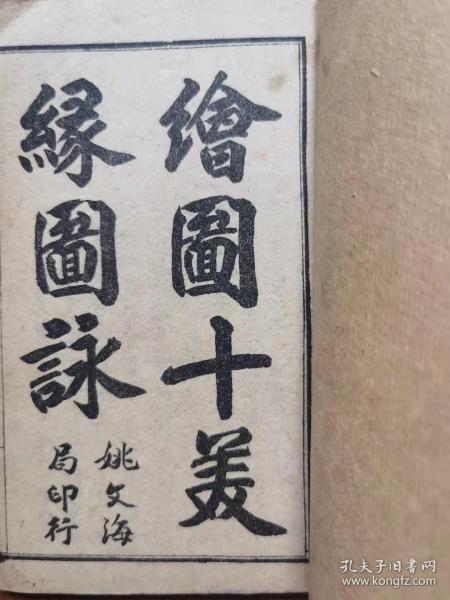 繪圖十美
緣圖詠
姚文海
局印行
孔夫子旧书网
www.kongfz.com